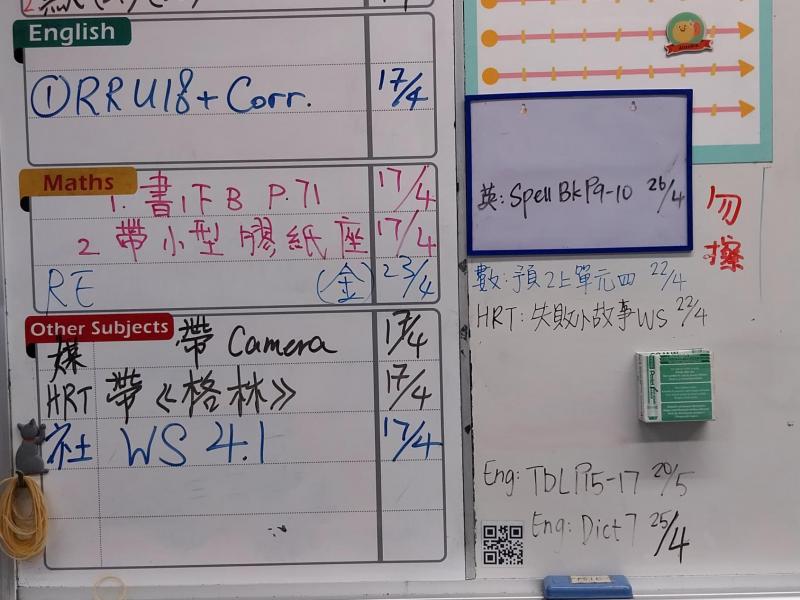 English
①RRU18+ Corr. 17/4
Maths
1. 書1下B P.71 17/4
2 帶小型膠紙座 17/4
RE (金) 23/4
Other Subjects
媒 帶 Camera 17/4
HRT 帶《格林》 17/4
社 WS 4.1 17/4
英: Spell Bk P9-10 26/4
勿擦
數: 預2上單元四 22/4
HRT: 失敗小故事WS 22/4
Eng: TbLP15-17 20/5
Eng: Dict 7 25/4